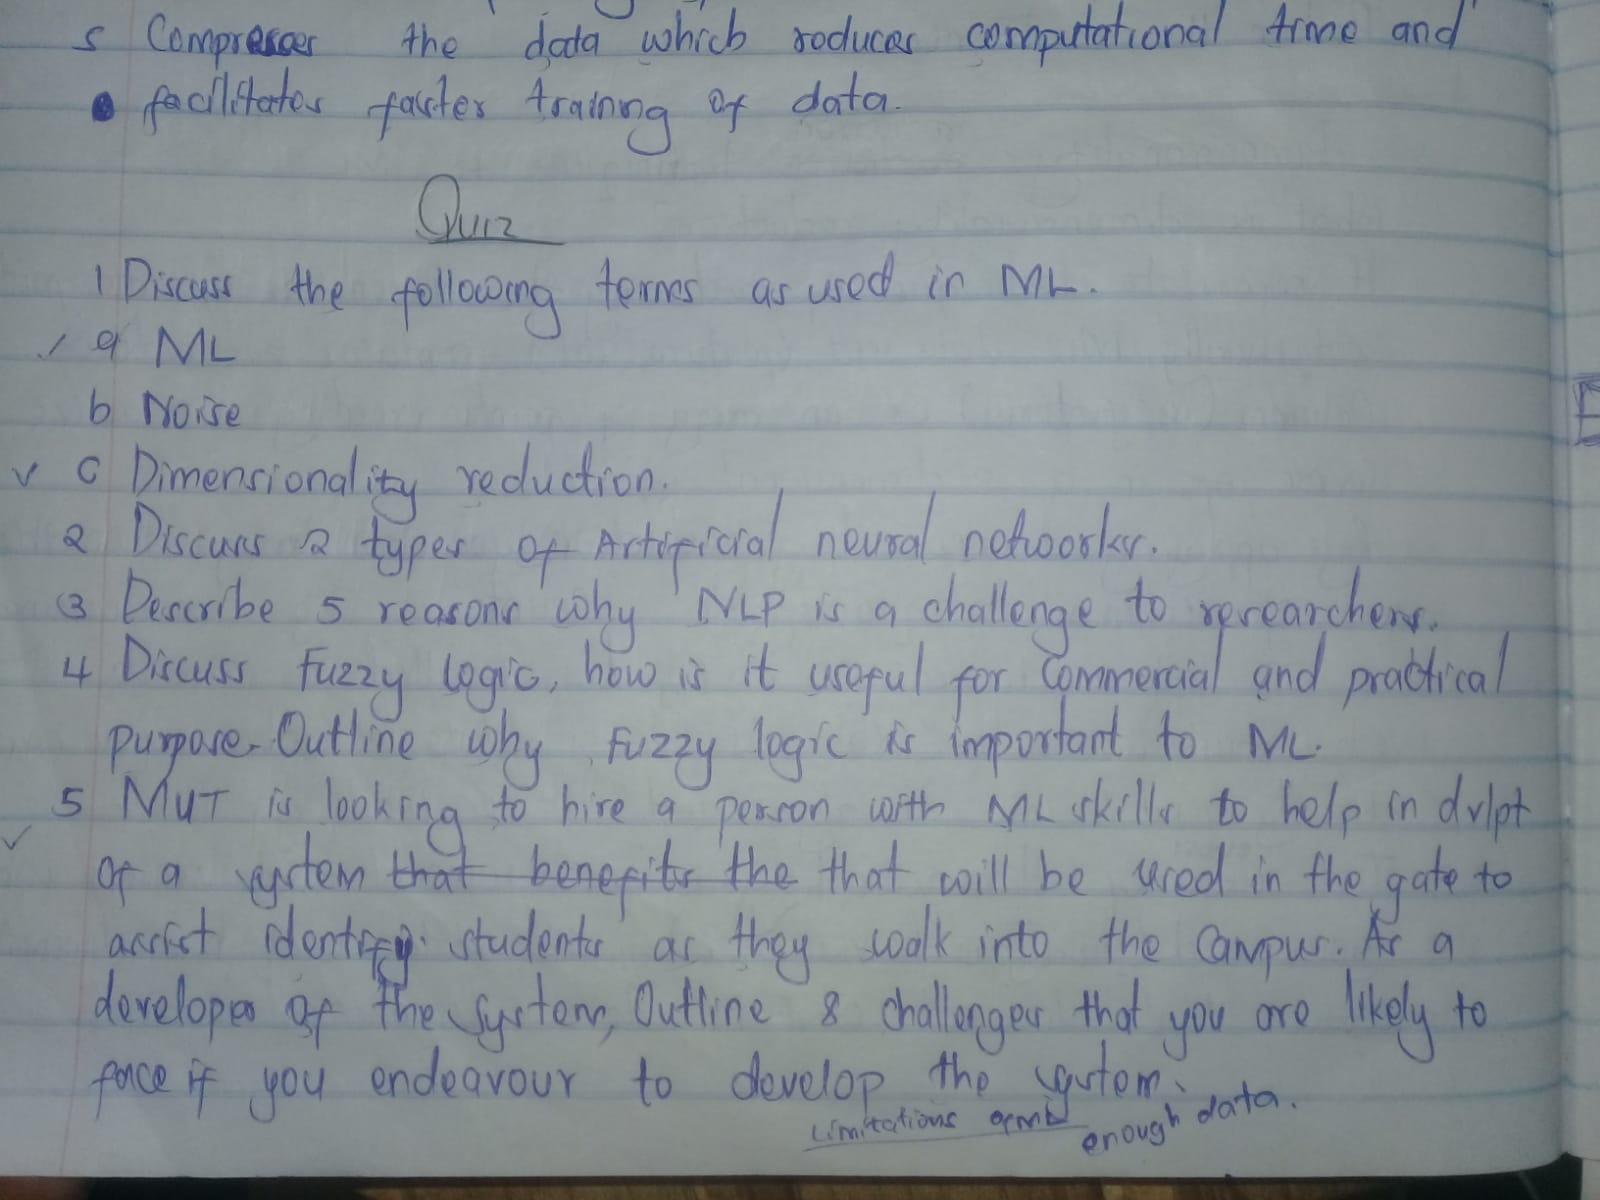 5 Compresses the data which reduces computational time and
facilitates faster training of data.
Quiz
1 Discuss the following terms as used in ML.
a ML
b Noise
c Dimensionality reduction.
2 Discuss 2 types of Artificial neural networks.
3 Describe 5 reasons why NLP is a challenge to researchers.
4 Discuss Fuzzy logic, how is it useful for Commercial and practical
purpose. Outline why Fuzzy logic is important to ML.
5 MUT is looking to hire a person with ML skills to help in dvlpt
of a system that benefits the that will be used in the gate to
assist identify students as they walk into the Campus. As a
developer of the system, Outline 8 challenges that you are likely to
face if you endeavour to develop the system.
Limitations of ML enough data.